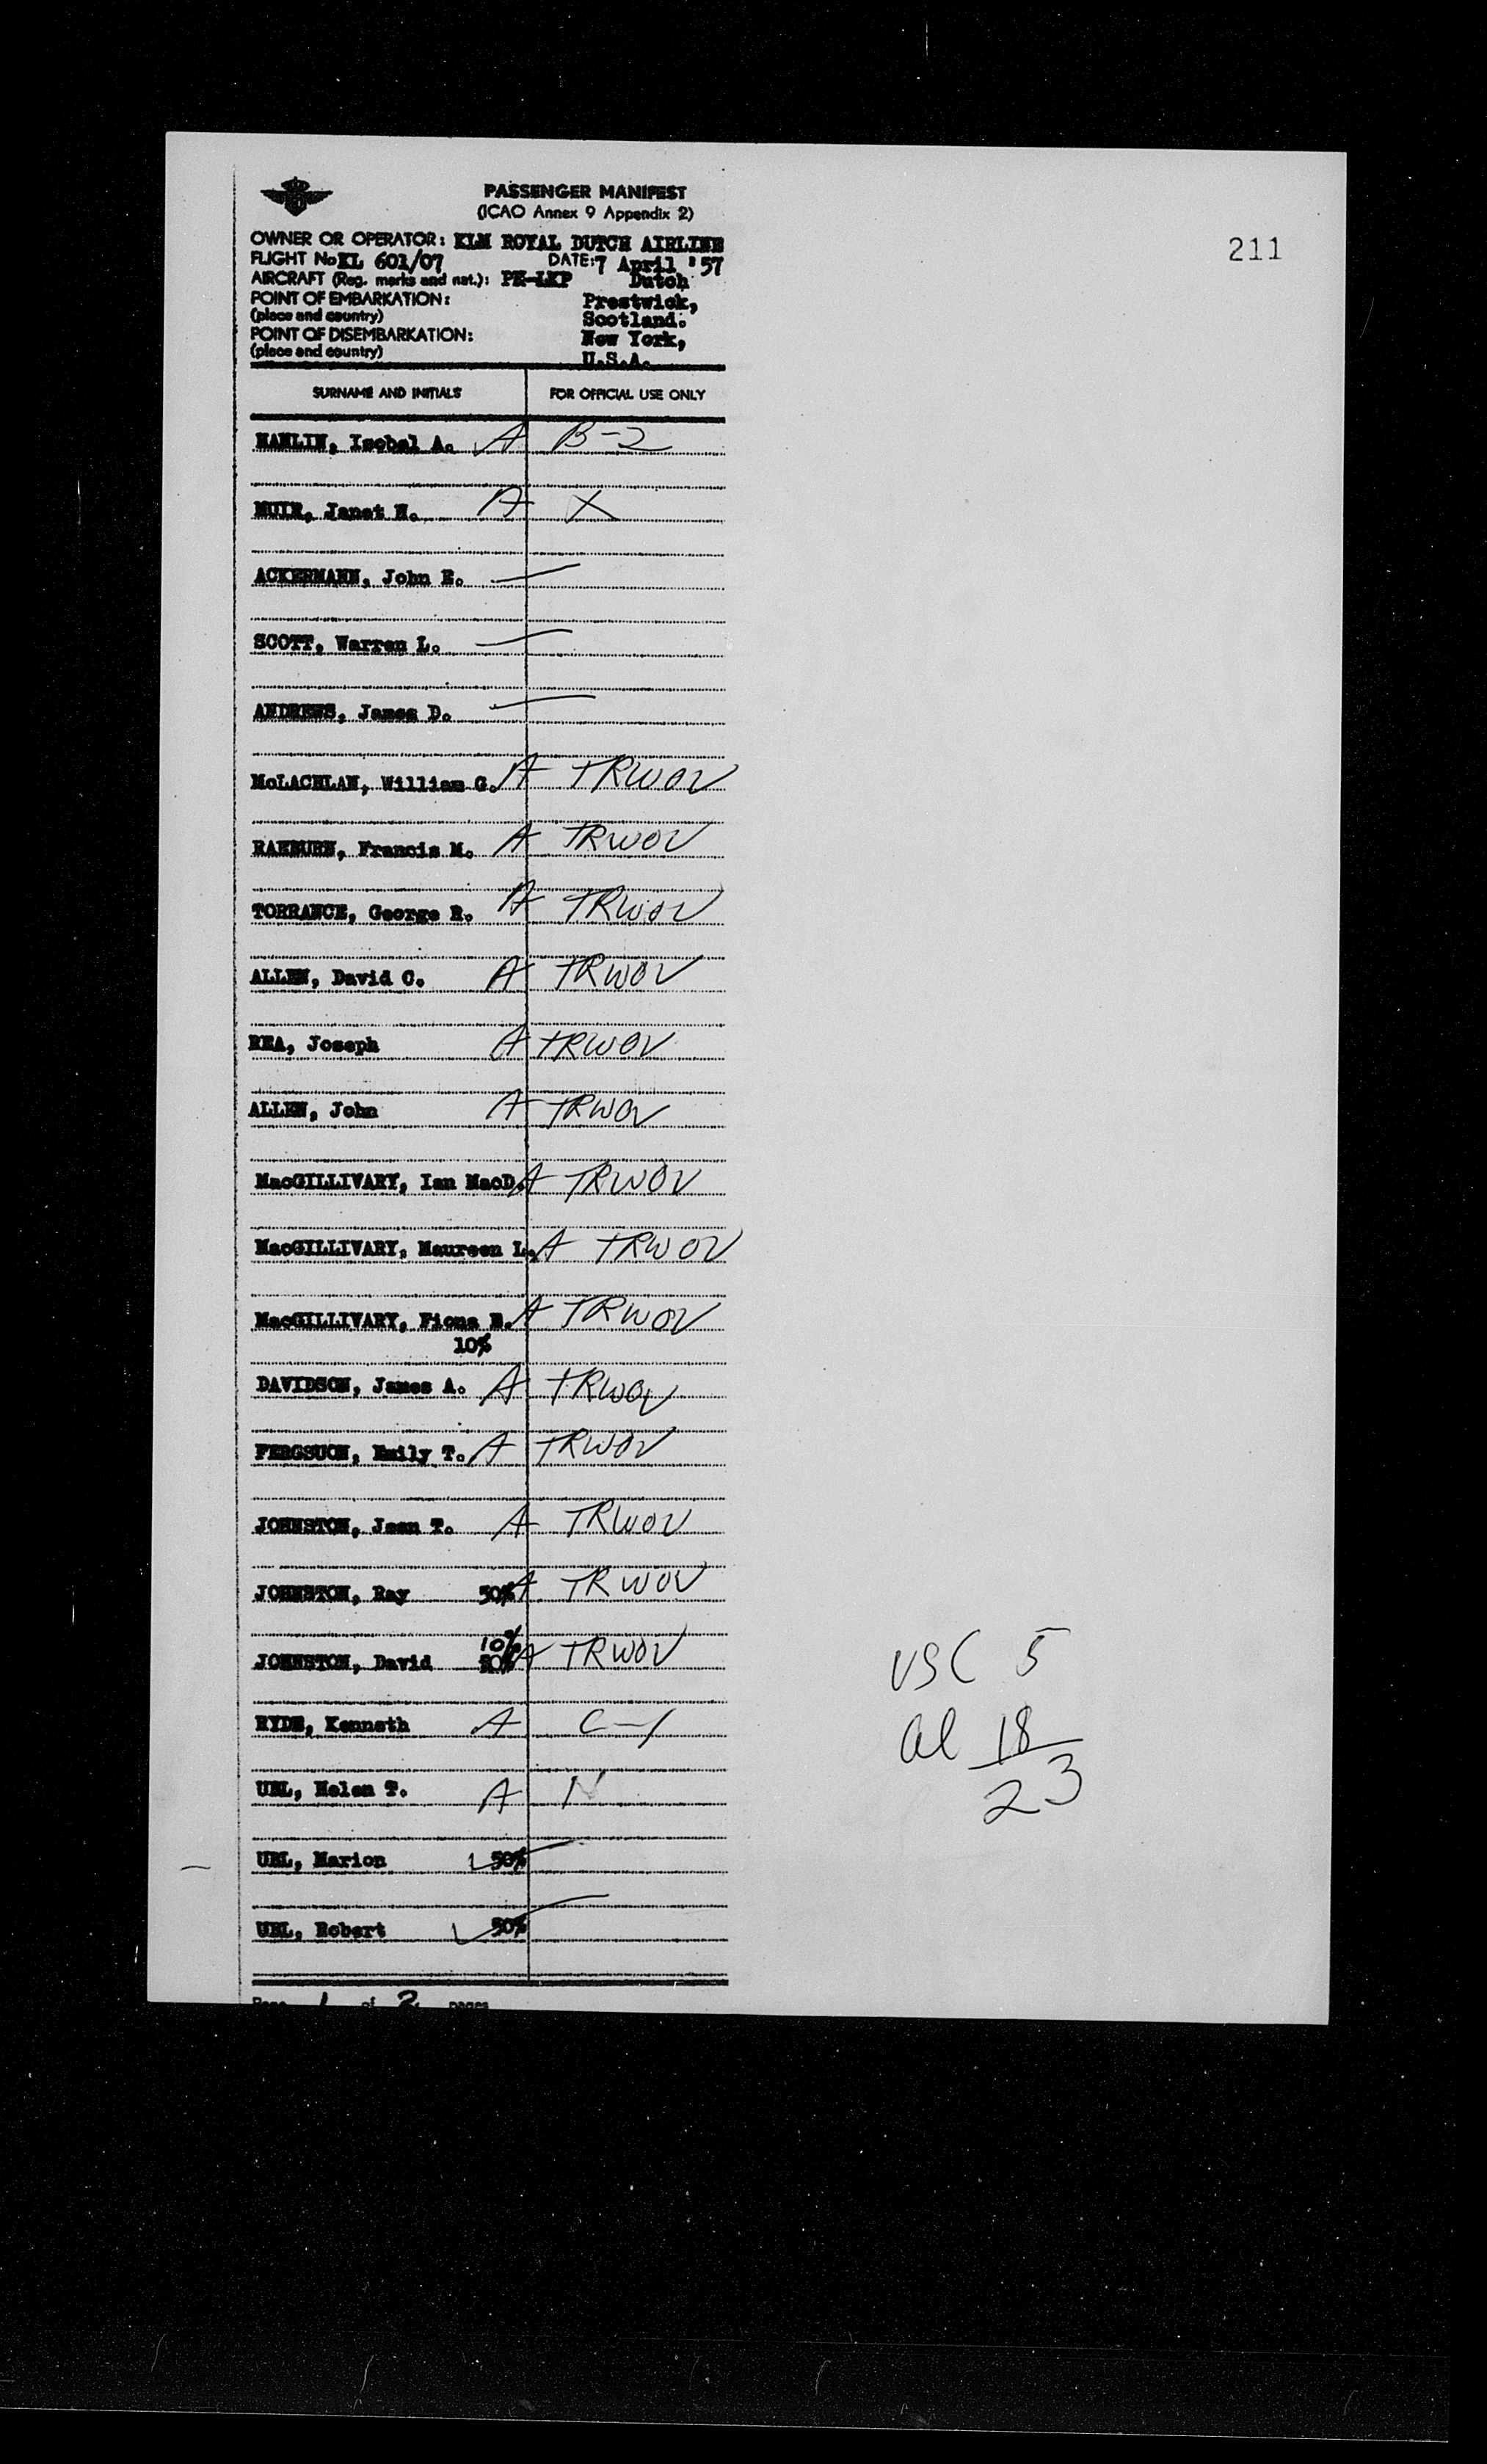 PASSENGER MANIFEST
(ICAO Annex 9 Appendix 2)
211
OWNER OR OPERATOR: KLM ROYAL DUTCH AIRLINE
FLIGHT No KL 601/07 DATE: 7 April '57
AIRCRAFT (Reg. marks and nat.): PH-LKP Dutch
POINT OF EMBARKATION: Prestwick,
(place and country) Scotland.
POINT OF DISEMBARKATION: New York,
(place and country) U.S.A.
SURNAME AND INITIALS FOR OFFICIAL USE ONLY
HAMLIN, Isobel A. A B-2
MUIR, Janet A X
ACKERMANN, John E.
SCOTT, Warren L.
ANDREWS, James D.
McLACHLAN, William G. A TRWOV
RAEBURN, Francis M. A TRWOV
TORRANCE, George R. A TRWOV
ALLEN, David C. A TRWOV
REA, Joseph A TRWOV
ALLEN, John A TRWOV
MacGILLIVARY, Ian MacD. A TRWOV
MacGILLIVARY, Maureen L. A TRWOV
MacGILLIVARY, Fiona A TRWOV
10%
DAVIDSON, James A. A TRWOV
FERGSUON, Emily T. A TRWOV
JOHNSTON, Jean T. A TRWOV
JOHNSTON, Ray 50% A TRWOV
10%
JOHNSTON, David 50% A TRWOV
USC 5
RYDE, Kenneth A C-1
al 18
23
UBL, Helen T. A N
UBL, Marion 50%
UBL, Robert 50%
Page 1 of 2 pages